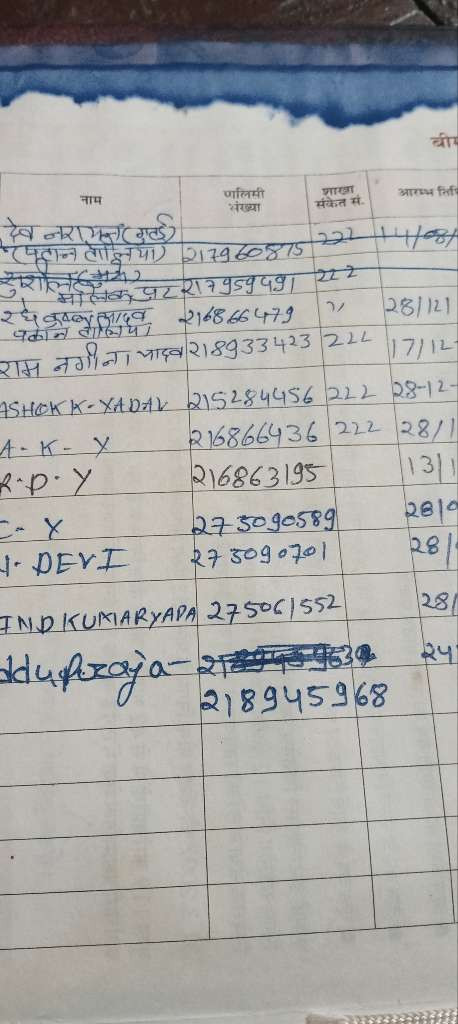 बीम
नाम पालिसी संख्या शाखा संकेत सं. आरम्भ तिथि
देव नरायन 222 14/08/
217960875
217959491 222
216866479 " 28/12/
राम नगीना यादव 218933423 222 17/12-
ASHOK K-YADAV 215284456 222 28-12-
A-K-Y 216866436 222 28/1
R.D.Y 216863195 13/1
C-Y 273090589 28/0
DEVI 273090701 28/
IND KUMARYADA 275061552 28/
ddu Praja- 24
218945968